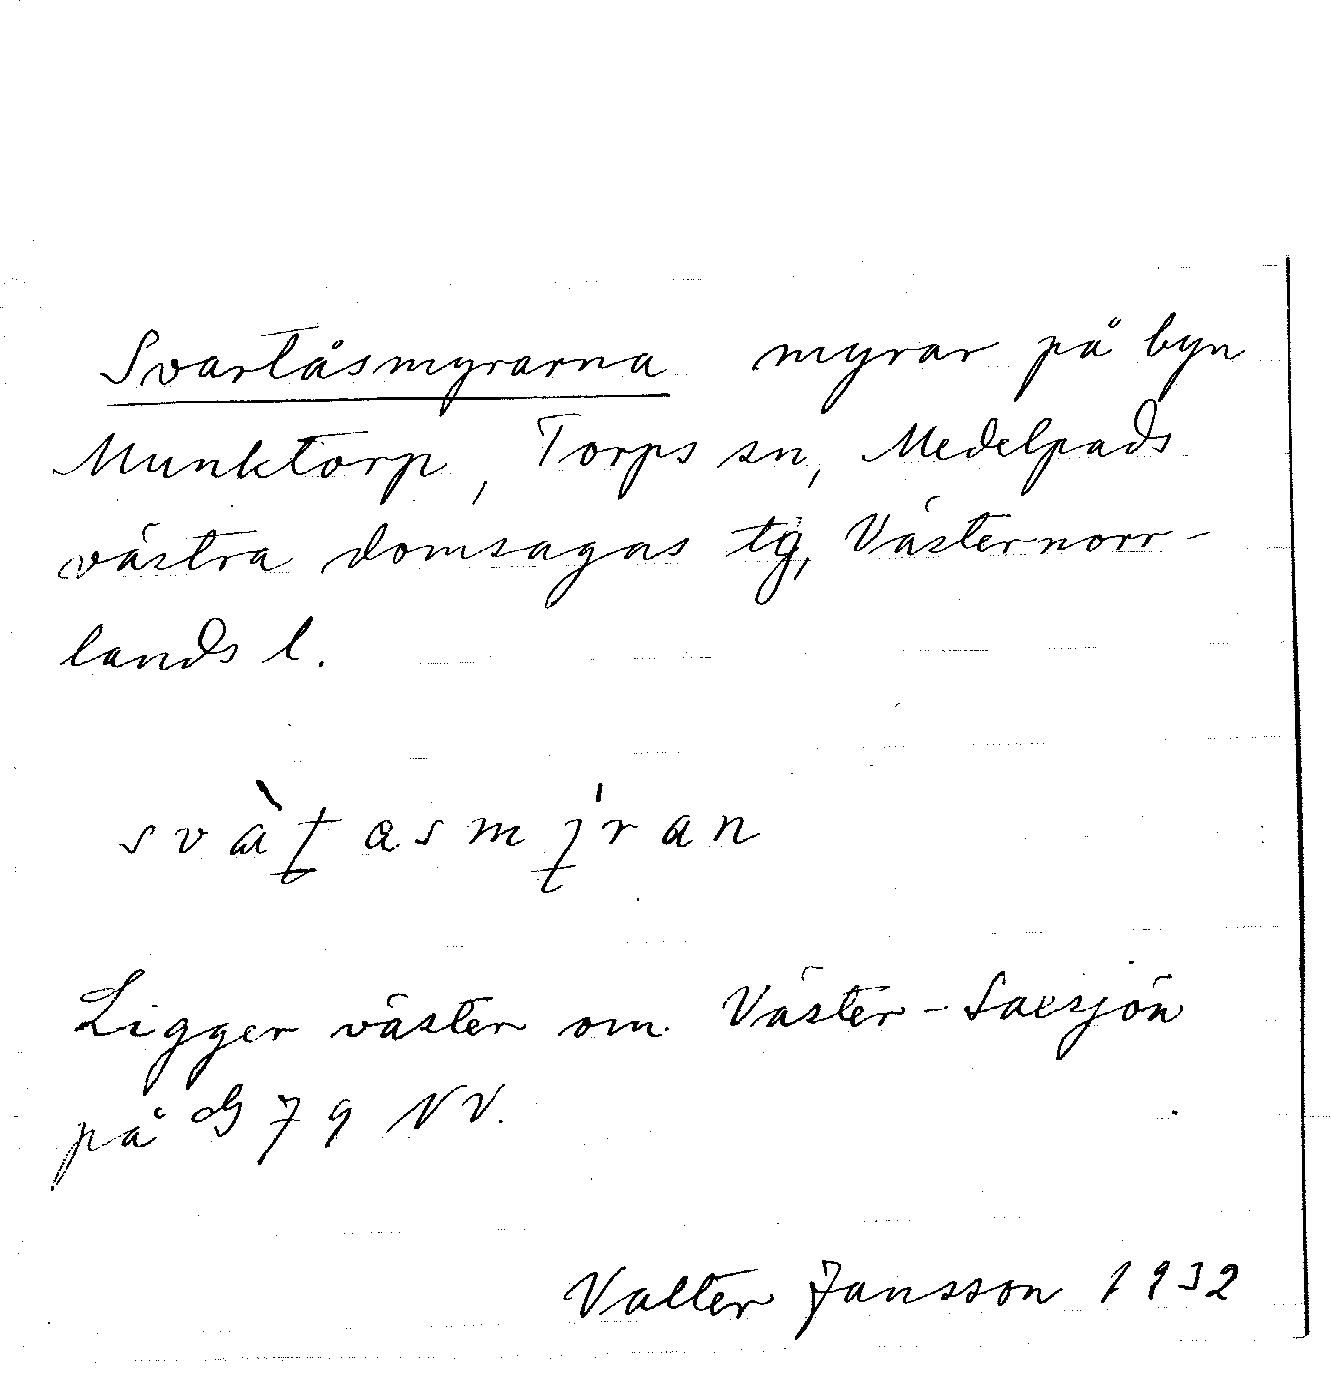 Svartåsmyrarna myrar på byn
Munktorp, Torps sn, Medelpads
västra domsagas tg, Västernorr-
lands l.
Ligger väster om Väster-Laxsjön
på G 79 NV.
Valter Jansson 1932